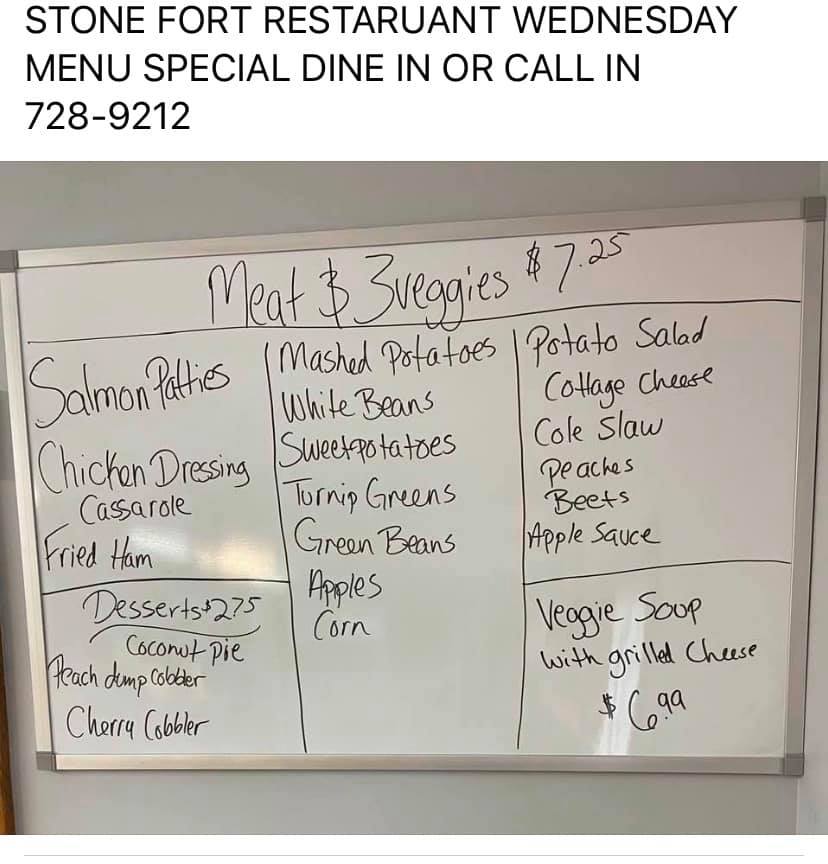 STONE FORT RESTARUANT WEDNESDAY
MENU SPECIAL DINE IN OR CALL IN
728-9212
Meat $ 3veggies $7.25
Salmon Patties
Chicken Dressing
Cassarole
Fried Ham
Desserts $2.75
Coconut Pie
Peach dump Cobbler
Cherry Cobbler
Mashed Potatoes
White Beans
Sweetpotatoes
Turnip Greens
Green Beans
Apples
Corn
Potato Salad
Cottage Cheese
Cole Slaw
Peaches
Beets
Apple Sauce
Veggie Soup
with grilled Cheese
$6.99